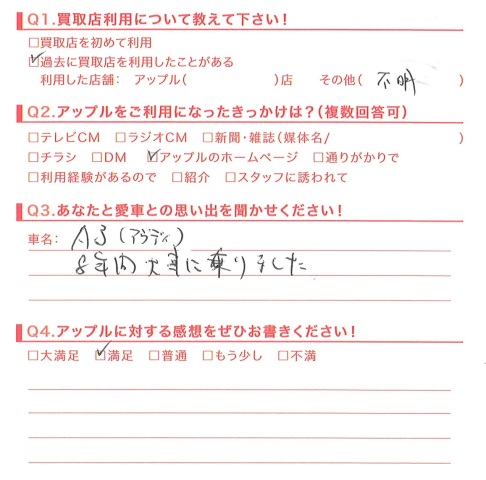 Q1.買取店利用について教えて下さい！
□買取店を初めて利用
☑過去に買取店を利用したことがある
利用した店舗： アップル（　　　　　　　）店　その他（ 不明 ）
Q2.アップルをご利用になったきっかけは？（複数回答可）
□テレビCM □ラジオCM □新聞・雑誌（媒体名/　　　　　　　）
□チラシ □DM ☑アップルのホームページ □通りがかりで
□利用経験があるので □紹介 □スタッフに誘われて
Q3.あなたと愛車との思い出を聞かせください！
車名： A3（アウディ）
8年間大事に乗りました
Q4.アップルに対する感想をぜひお書きください！
□大満足 ☑満足 □普通 □もう少し □不満